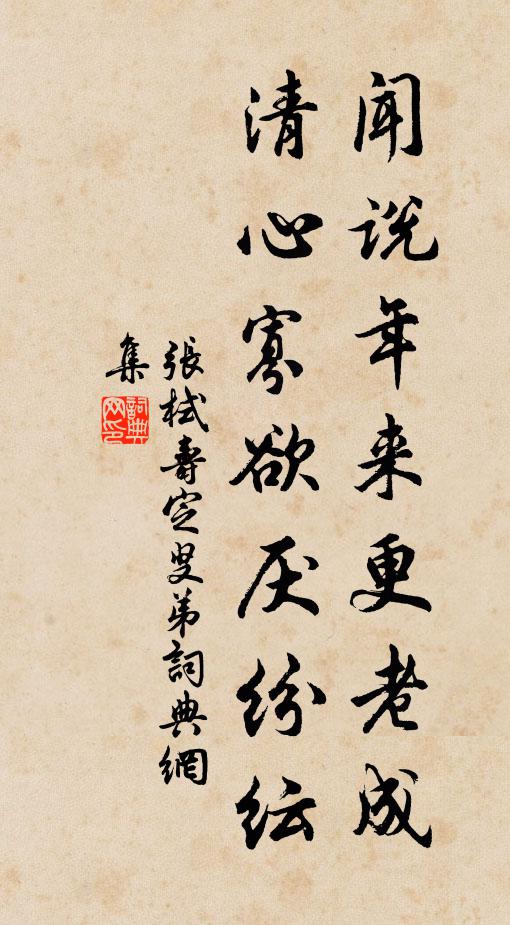 闻说年来更老成
清心寡欲厌纷纭
張栻壽定叟弟詞典網
集
詞典网印